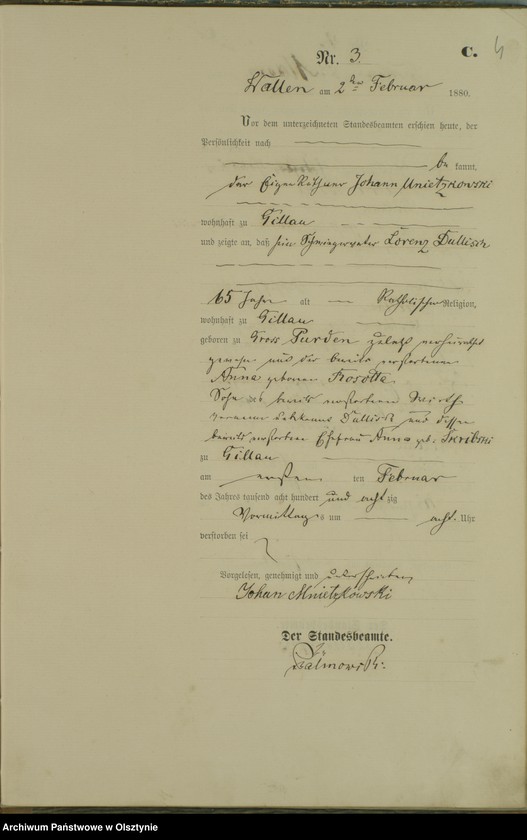 C.
4
Nr. 3.
Wallen am 2ten Februar 1880.
Vor dem unterzeichneten Standesbeamten erschien heute, der
Persönlichkeit nach
be kannt,
der Eigenkäthner Johann Mnietzkowski
wohnhaft zu Gillau
und zeigte an, daß sein Schwiegervater Lorenz Dullisch
65 Jahre alt Katholischer Religion,
wohnhaft zu Gillau
geboren zu Gross Purden zuletzt verheirathet
gewesen mit der bereits verstorbenen
Anna geborenen Kosotta
Sohn des bereits verstorbenen Wirth
Dullisch und dessen
bereits verstorbene Ehefrau Anna geb. Skribski
zu Gillau
am ersten ten Februar
des Jahres tausend acht hundert und acht zig
Vormittags um acht Uhr
verstorben sei
Vorgelesen, genehmigt und unterschrieben
Johan Mnietzkowski
Der Standesbeamte.
Archiwum Państwowe w Olsztynie